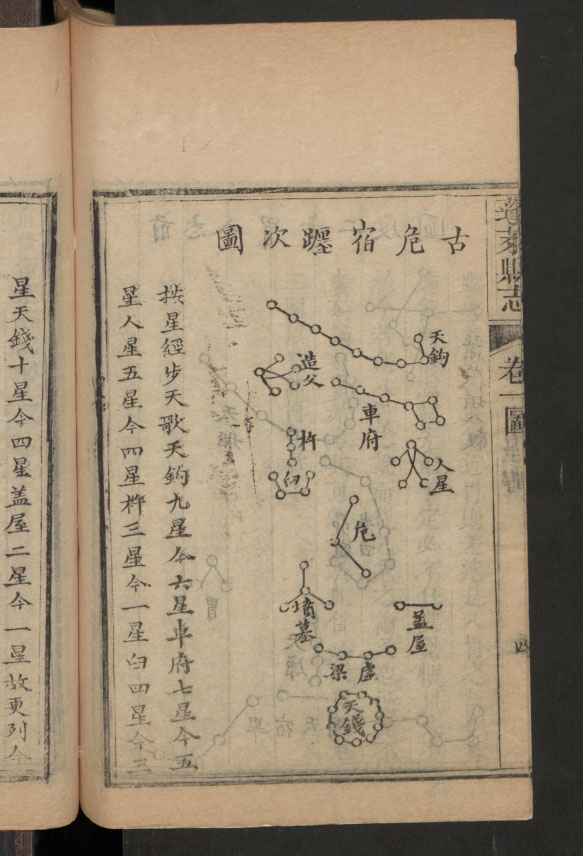 縣志
卷一
圖
四
古危宿躔次圖
天鈎
造父
車府
杵
人星
臼
危
墳墓
盖屋
虛梁
天錢
星經步天歌天鈎九星今六星車府七星今五
星人星五星今四星杵三星今一星臼四星今三
星天錢十星今四星盖屋二星今一星故更列今